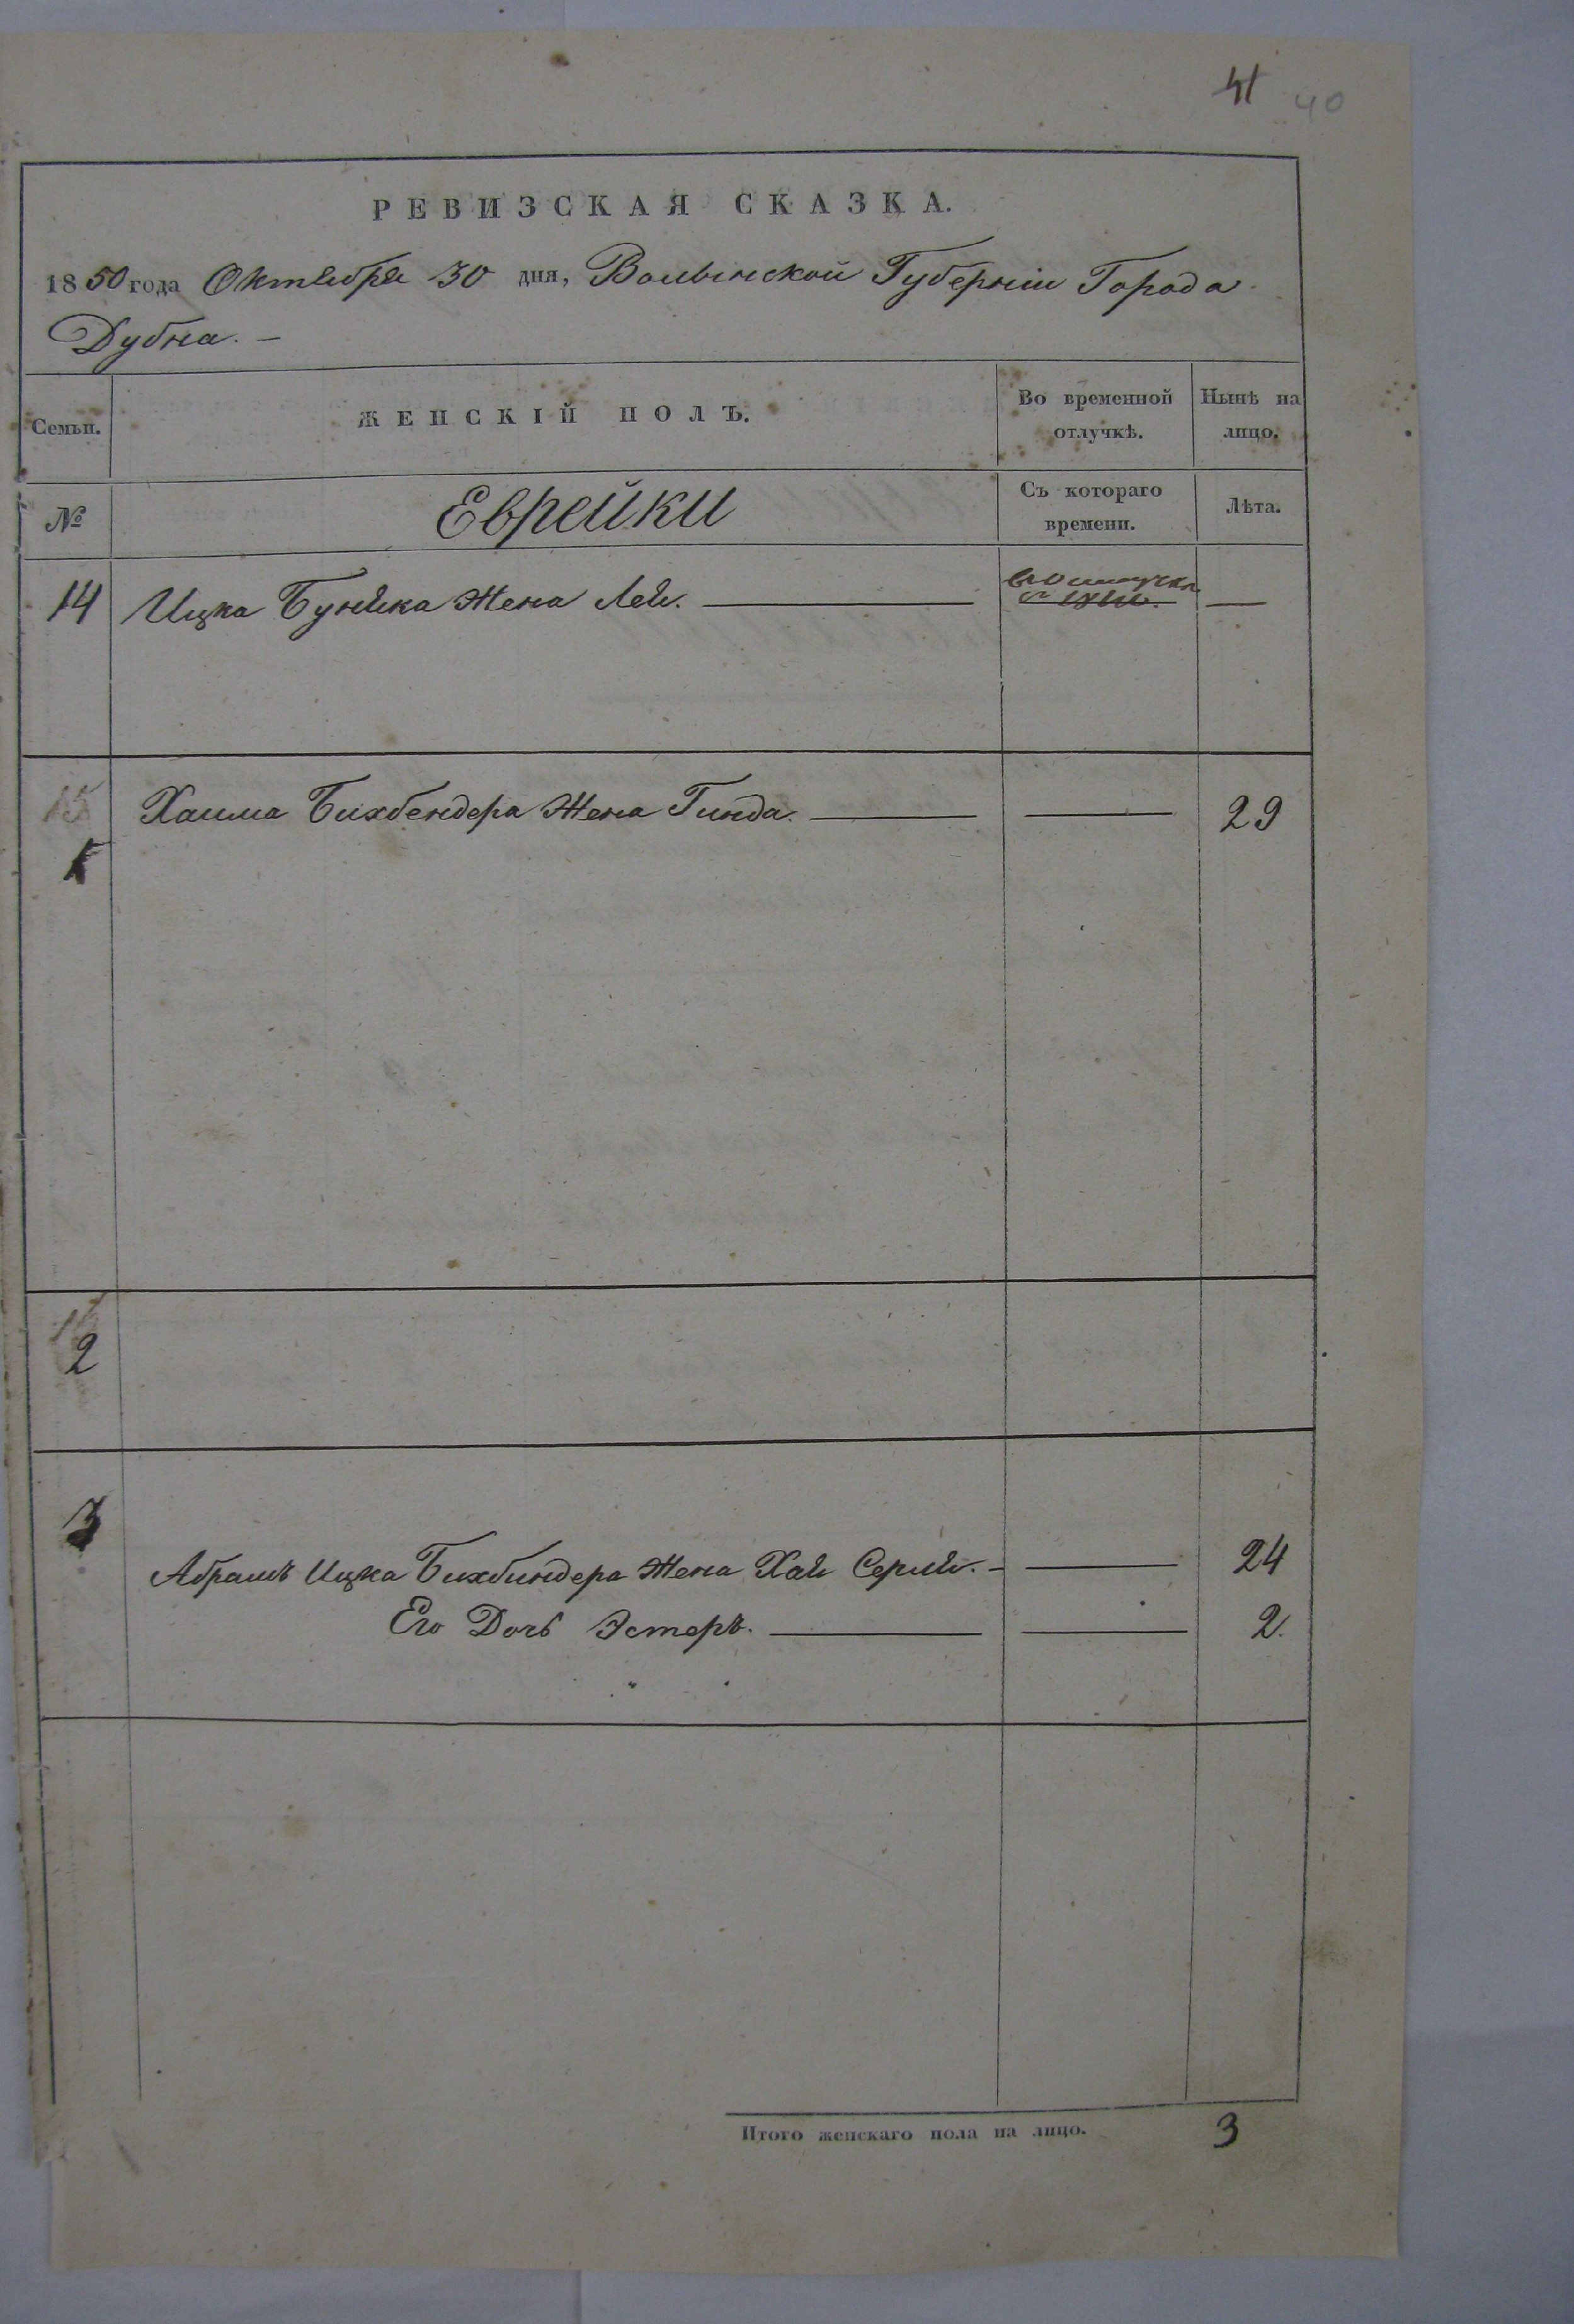 41 40
РЕВИЗСКАЯ СКАЗКА.
1850 года Октября 30 дня, Волынской Губерніи Города
Дубна. –
Семьи. ЖЕНСКІЙ ПОЛЪ. Во временной отлучкѣ. Нынѣ на лицо.
№ Еврейки Съ котораго времени. Лѣта.
14 Ицка Буняка Жена Лея. —
15 Хаима Бихбендера Жена Гинда. — — 29
1
2
3
Абрамъ Ицка Бихбиндера Жена Хая Серля. – — 24
Его Дочь Эстеръ. — — 2.
Итого женскаго пола на лицо. 3